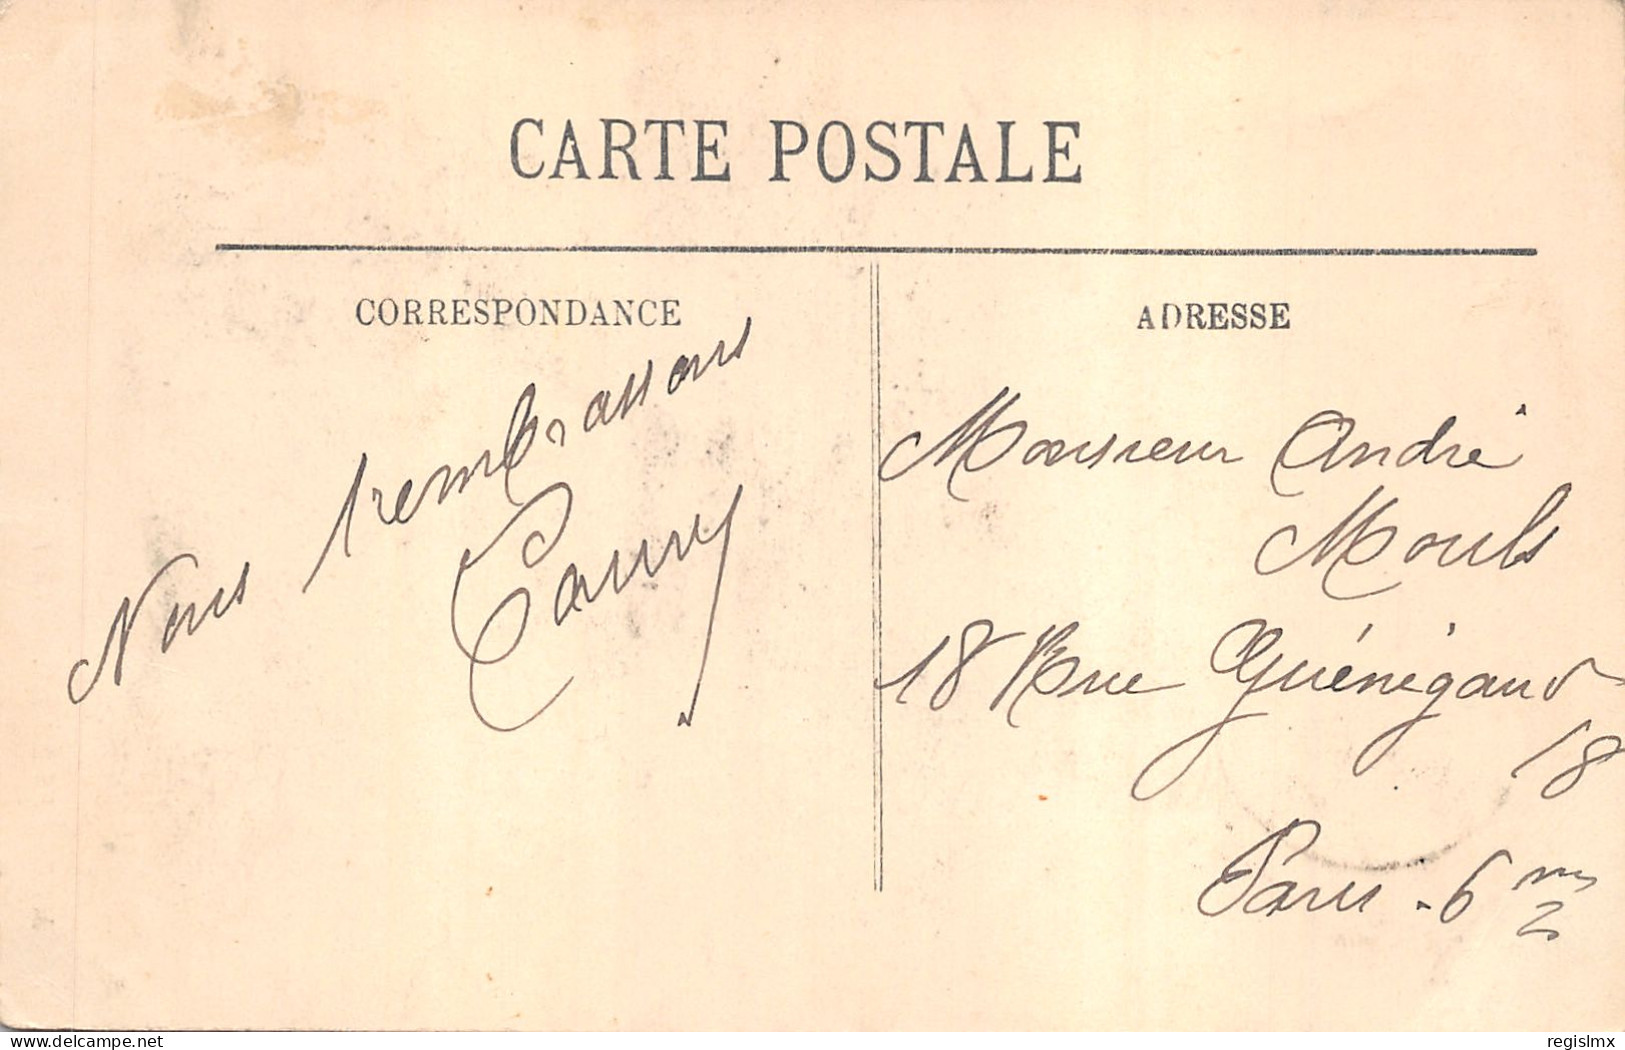 CARTE POSTALE
CORRESPONDANCE
ADRESSE
Nous t'embrassons
Monsieur André
Mouls
18 Rue Guénégaud
18
Paris . 6 me
www.delcampe.net
regislmx